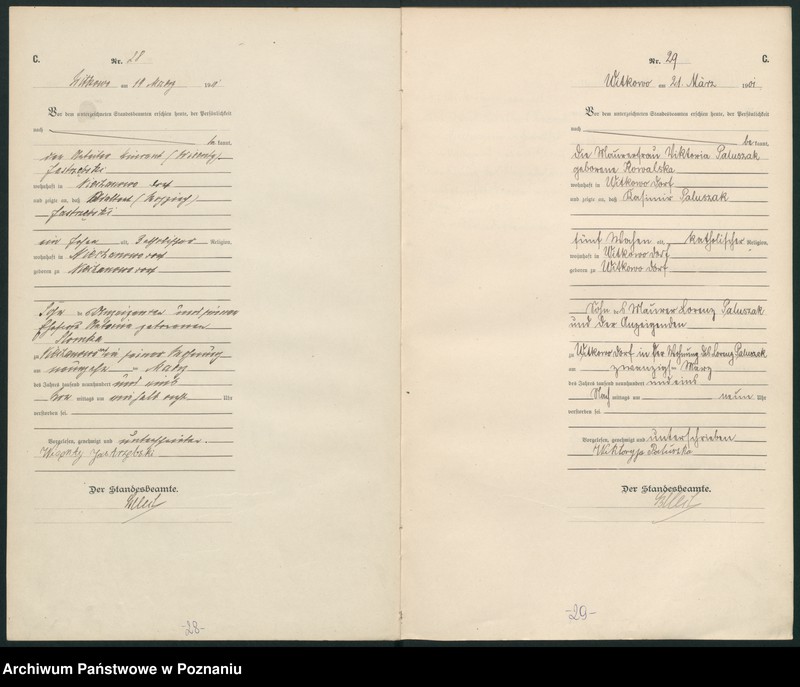 C.
Nr. 28
Witkowo am 19 März 1901
Vor dem unterzeichneten Standesbeamten erschien heute, der Persönlichkeit
nach
be kannt,
der Arbeiter
wohnhaft in Niechanowo Dorf
und zeigte an, daß
ein Jahr alt, katholischer Religion,
wohnhaft in Niechanowo Dorf
geboren zu Niechanowo Dorf
Sohn des Anzeigenden und seiner
Ehefrau geborenen
Slomka
zu Niechanowo in seiner Wohnung
am neunzehn ten März
des Jahres tausend neunhundert und eins
Vor mittags um Uhr
verstorben sei.
Vorgelesen, genehmigt und unterschrieben.
Der Standesbeamte.
-28-
C.
Nr. 29
Witkowo am 21. März 1901
Vor dem unterzeichneten Standesbeamten erschien heute, der Persönlichkeit
nach
be kannt,
die Maurerfrau Viktoria Paluszak
geborene Kowalska
wohnhaft in Witkowo Dorf
und zeigte an, daß Kasimir Paluszak
fünf Wochen alt, katholischer Religion,
wohnhaft in Witkowo Dorf
geboren zu Witkowo Dorf
Sohn des Maurer Lorenz Paluszak
und der Anzeigenden
zu Witkowo Dorf in der Wohnung des Lorenz Paluszak
am zwanzigsten März
des Jahres tausend neunhundert und eins
Nach mittags um neun Uhr
verstorben sei.
Vorgelesen, genehmigt und unterschrieben
Wiktoryja
Der Standesbeamte.
-29-
Archiwum Państwowe w Poznaniu